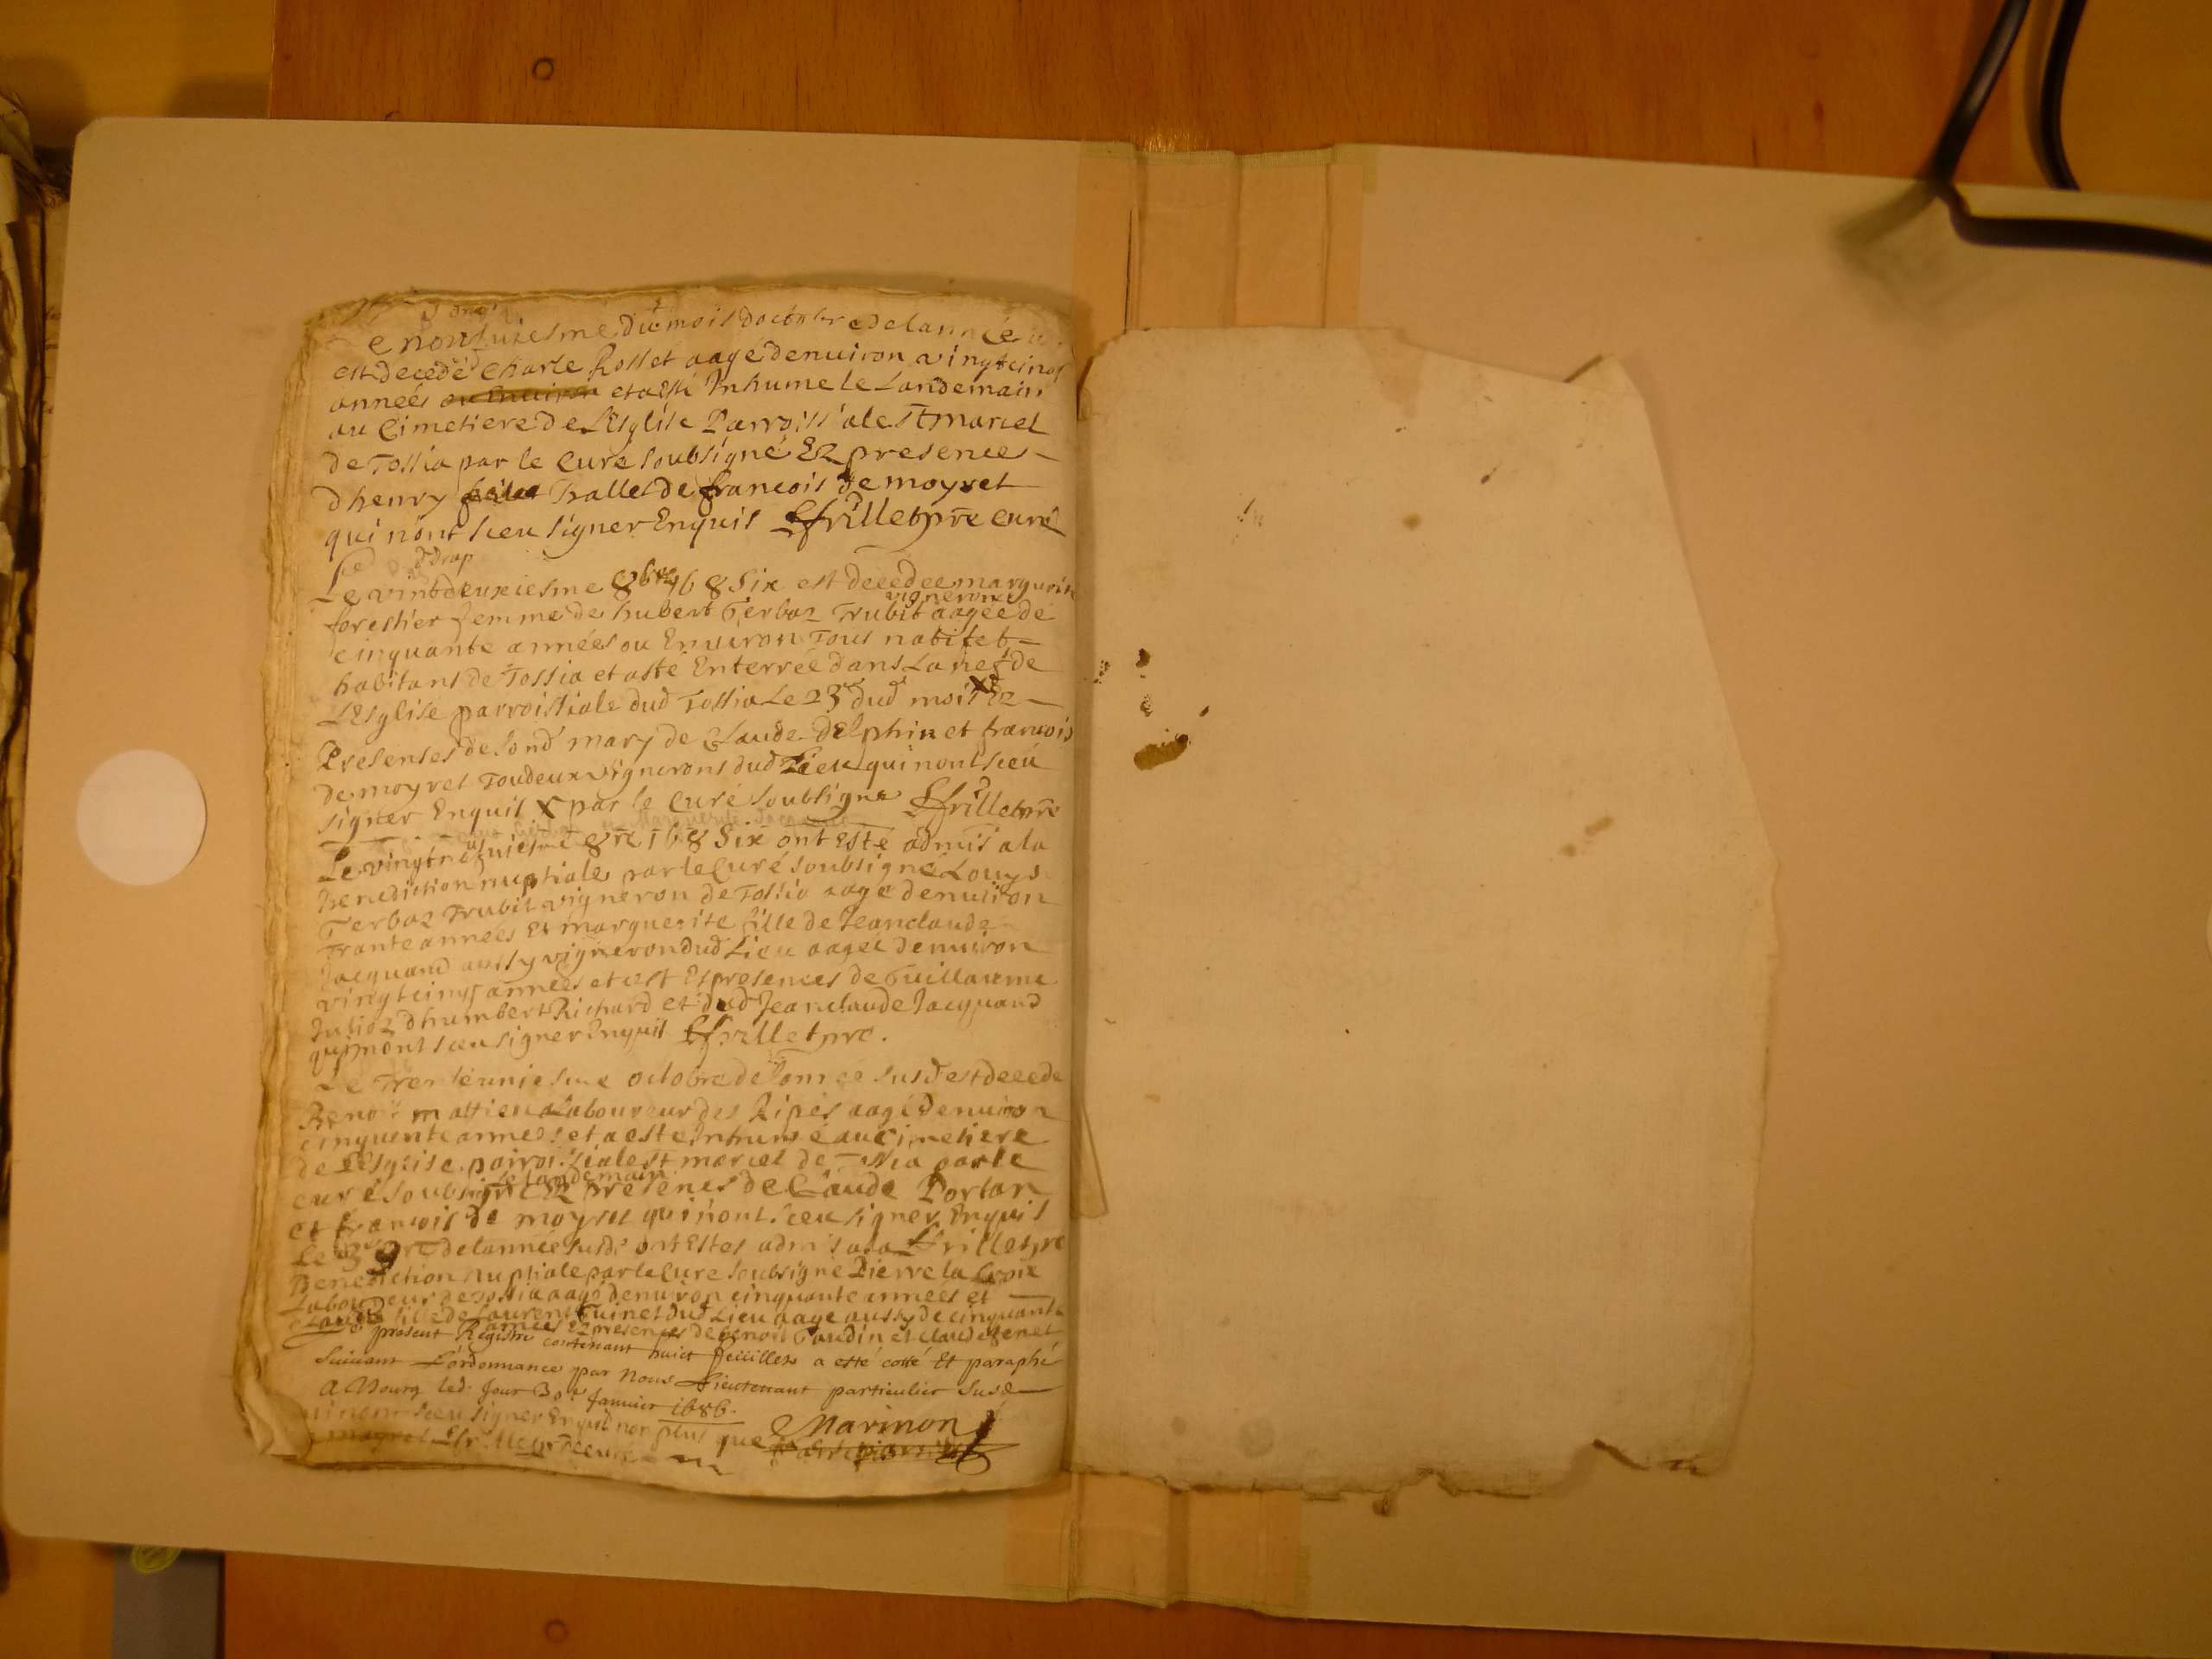 e nonfuiesme du mois doctobre de lannée
est decedé Charle Rosset aagé denuiron vingtcinq
années ou Enuiron et a esté Inhume le Landemain
au Cimetiere de LEsglise Parroissiale St marcel
de Tossia par le Curé soubsigné Ez presences
dhenry hallet de francois de moyret
qui nont sceu signer Enquis frillet pre curé
Le vintdeuxiesme 8bre 168 Six est decedee marguerite
vigneron
forestier femme de hubert Terboz Trubit aagée de
cinquante années ou Enuiron Tous
habitans de Tossia et a esté Enterrée dans La nef de
LEsglise parroissiale dud Tossia Le 23 dud mois Ez
Presenses de sond mary de Claude Delphin et francois
de moyret Toudeux vignerons dud Lieu qui nont sceu
signer Enquis X par le Curé soubsigne frillet pre
Le 8re 168 Six ont Esté admis a la
benediction nuptiale par le Curé soubsigné Louys
Terboz Trubit vigneron de Tossia aage denuiron
Trante années Et marguerite fille de Jeanclaude
Jacquand aussy vigneron dud Lieu aagée denuiron
vingtcinq années et cest Ez presences de Guillaume
dhumbert Richard et dud Jeanclaude Jacquand
qui nont sceu signer Enquis frillet pre.
Le Trenteuniesme octobre de lannée susd est decede
Benoit mattieu Laboureur des Ripes aagé denuiron
cinquente années et a esté Inhumé au cimetiere
de LEsglise parroissiale st marcel de Tossia par le
Le landemain
curé soubsigné Ez presenes de Claude Portan
et francois de moyret qui nont sceu signer Enquis
Le 3 9re de lannée susd ont Estes admis a la frillet pre
Benediction nuptiale par le Cure soubsigné Pierre la Croix
Laboureur de Tossia aagé denuiron cinquante années et
Claude fille de Laurent Guinet dud Lieu aage aussy de cinquante
années Ez presences de benoit Gaudin et claude
present Registre contenant huict feuillets a esté cotté Et paraphé
Suiuant Lordonnance par Nous Lieutenant particulier Susd
A Bourg led. Jour 30e Januier 1686.
qui nont sceu signer Enquis non plus que Marinon
moyret frillet pre curé